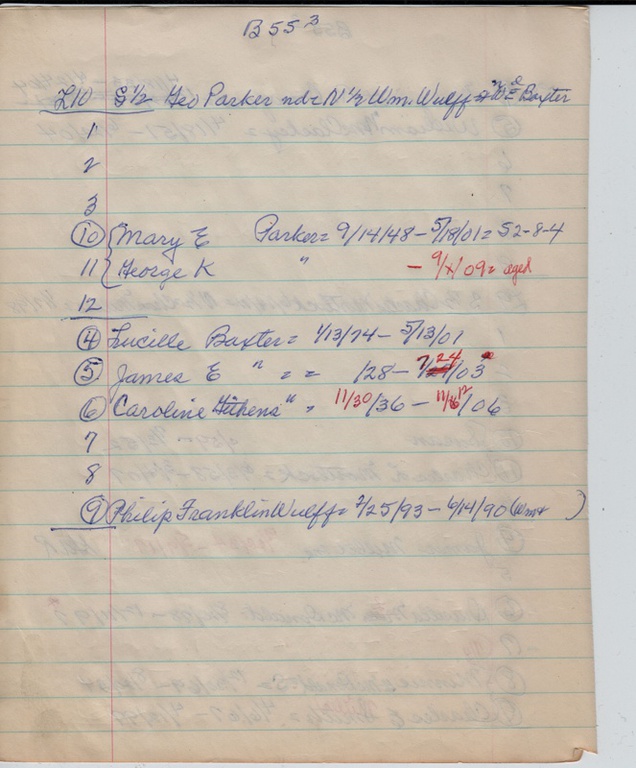 B 55 3
L10 S 1/2 Geo Parker nd= N 1/2 Wm. Wulff Baxter
1
2
3
10 Mary E Parker = 9/14/48 - 5/18/01 = 52-8-4
11 George K " - 9/x/09 = aged
12
4 Lucille Baxter = 1/13/74 - 5/13/01
5 James E " = = /28 - 7/24/03
6 Caroline Githens " = 11/30/36 - /06
7
8
9 Philip Franklin Wulff = 7/25/93 - 6/14/90 (Wm + )